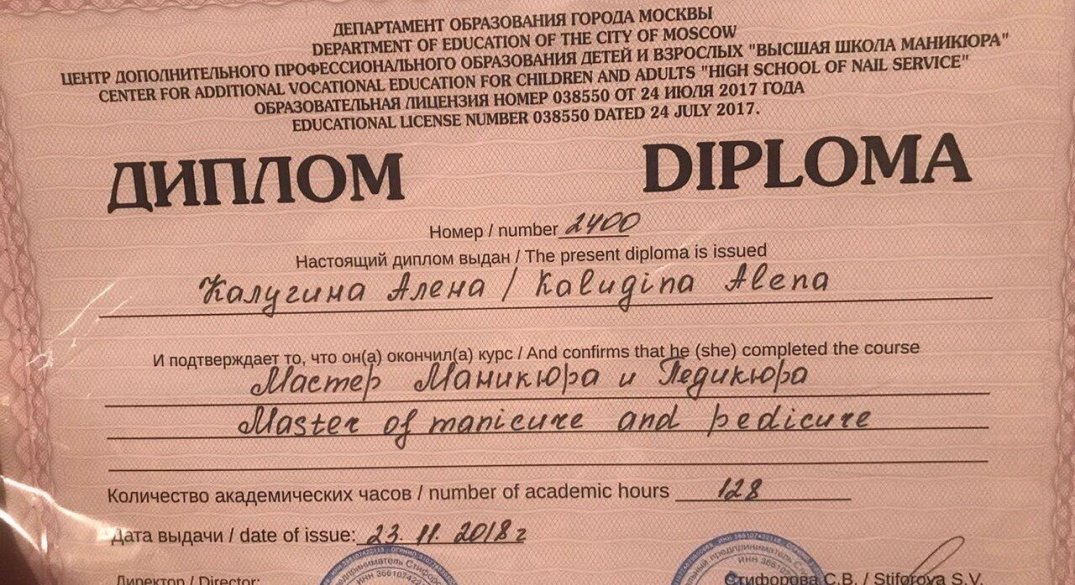 ДЕПАРТАМЕНТ ОБРАЗОВАНИЯ ГОРОДА МОСКВЫ
DEPARTMENT OF EDUCATION OF THE CITY OF MOSCOW
ЦЕНТР ДОПОЛНИТЕЛЬНОГО ПРОФЕССИОНАЛЬНОГО ОБРАЗОВАНИЯ ДЕТЕЙ И ВЗРОСЛЫХ "ВЫСШАЯ ШКОЛА МАНИКЮРА"
CENTER FOR ADDITIONAL VOCATIONAL EDUCATION FOR CHILDREN AND ADULTS "HIGH SCHOOL OF NAIL SERVICE"
ОБРАЗОВАТЕЛЬНАЯ ЛИЦЕНЗИЯ НОМЕР 038550 ОТ 24 ИЮЛЯ 2017 ГОДА
EDUCATIONAL LICENSE NUMBER 038550 DATED 24 JULY 2017.
ДИПЛОМ DIPLOMA
Номер / number 2400
Настоящий диплом выдан / The present diploma is issued
Калугина Алена / Kalugina Alena
И подтверждает то, что он(а) окончил(а) курс / And confirms that he (she) completed the course
Мастер Маникюра и Педикюра
Master of manicure and pedicure
Количество академических часов / number of academic hours 128
Дата выдачи / date of issue: 23. 11. 2018 г
Директор / Director: Стифорова С.В. / Stiforova S.V.